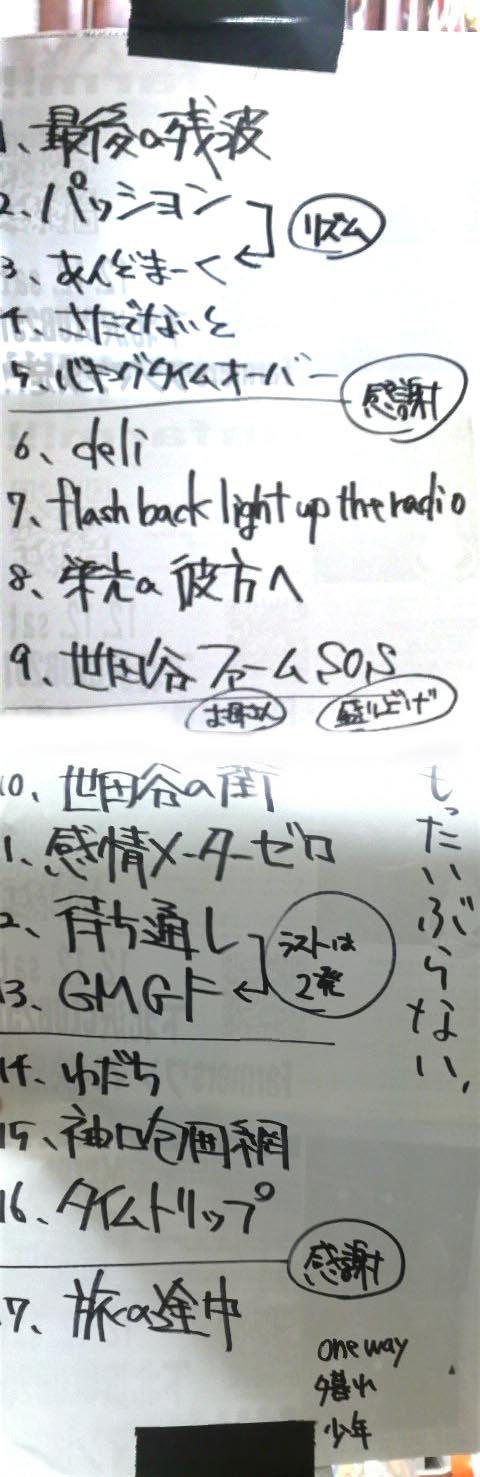 1、最後の残波
2、パッション
リズム
3、あんどまーく
4、さたでないと
5、バキングタイムオーバー
感謝
6、deli
7、flash back light up the radio
8、栄光の彼方へ
9、世田谷ファームSOS
お母さん
盛り上げ
10、世田谷の街
もったいぶらない、
1、感情メーターゼロ
2、待ち通し
ラストは
2発
13、GMGF
14、わだち
15、袖口包囲網
16、タイムトリップ
感謝
7、旅の途中
one way
夕暮れ
少年